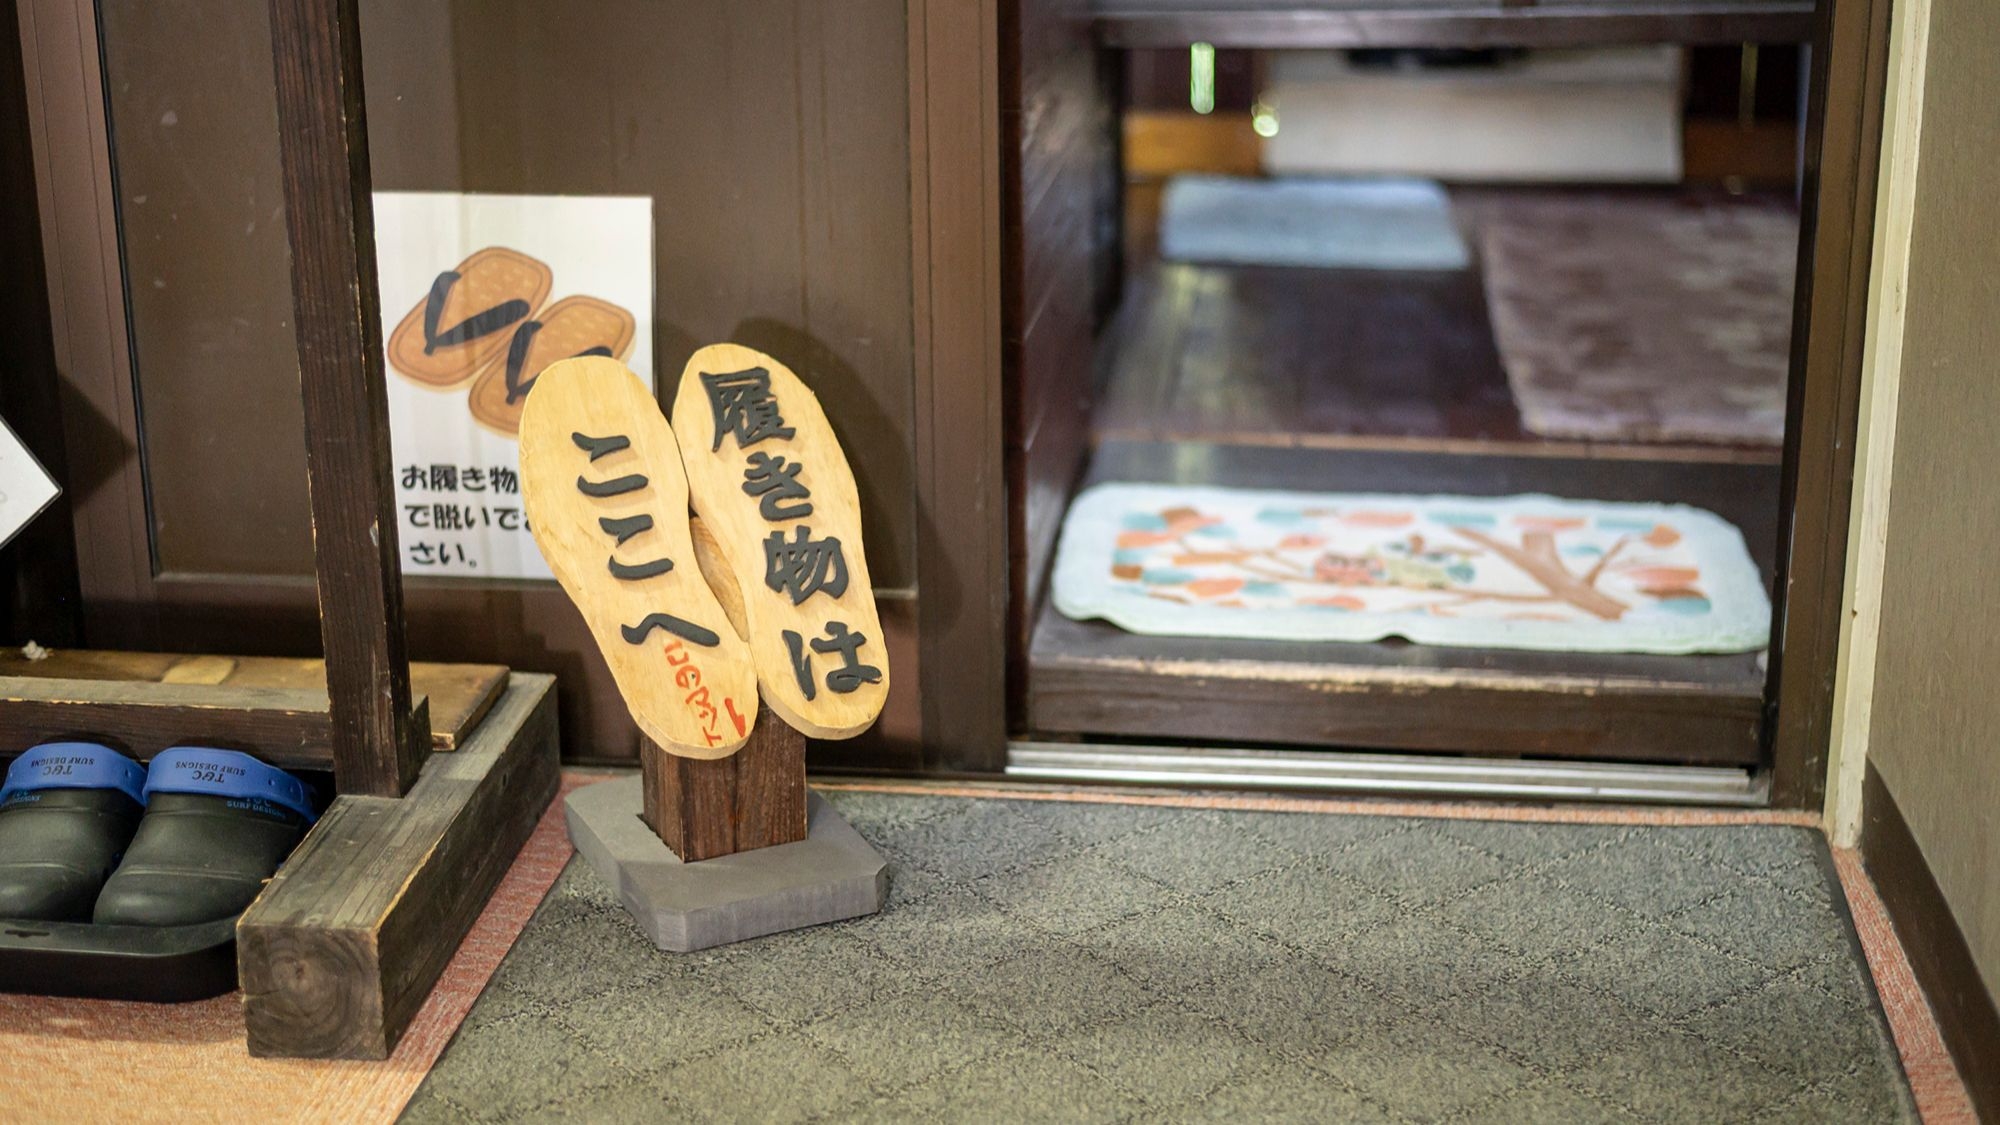 履き物は
ここへ
お履き物
で脱いで
さい。
T&C
SURF DESIGNS
T&C
SURF DESIGNS
SURF DESIGNS